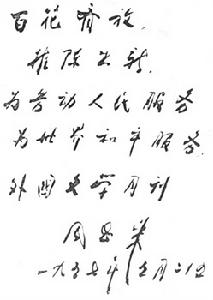 百花齐放.
推陈出新.
为劳动人民服务
为世界和平服务.
外国文学月刊
周
一九五七年 月二十